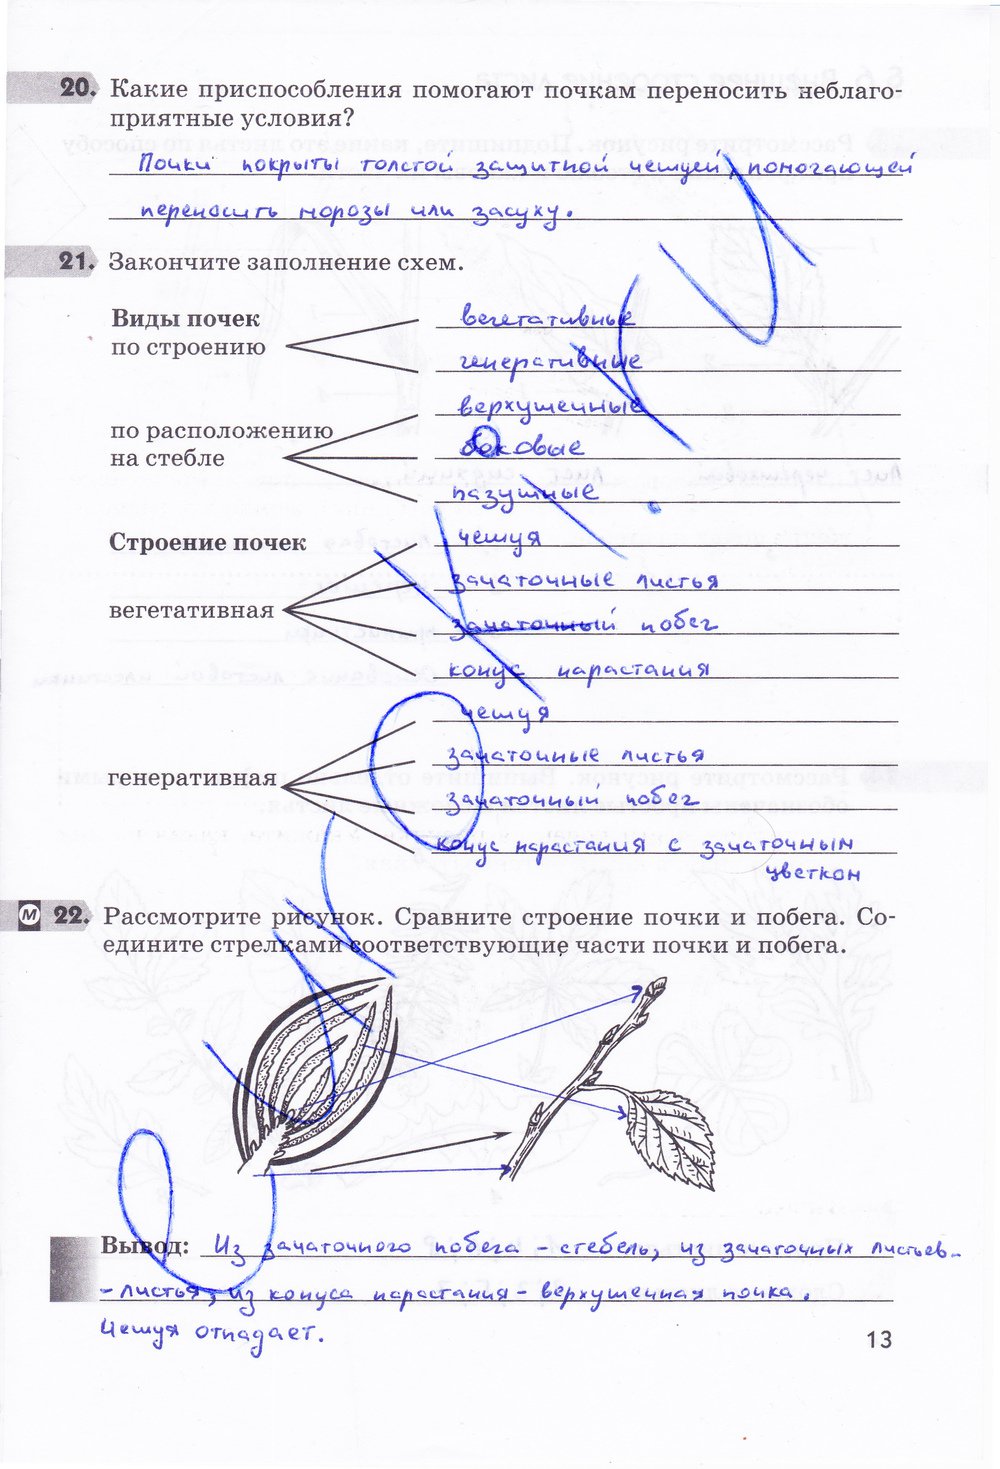 20. Какие приспособления помогают почкам переносить неблаго-
приятные условия?
Почки покрыты толстой защитной чешуей, помогающей
переносить морозы или засуху.
21. Закончите заполнение схем.
Виды почек
по строению
вегетативные
генеративные
по расположению
на стебле
верхушечные
боковые
пазушные
Строение почек
вегетативная
чешуя
зачаточные листья
зачаточный побег
конус нарастания
генеративная
чешуя
зачаточные листья
зачаточный побег
конус нарастания с зачаточным
цветком
М 22. Рассмотрите рисунок. Сравните строение почки и побега. Со-
едините стрелками соответствующие части почки и побега.
Вывод: Из зачаточного побега - стебель, из зачаточных листьев-
- листья, из конуса нарастания - верхушечная почка.
Чешуя отпадает.
13